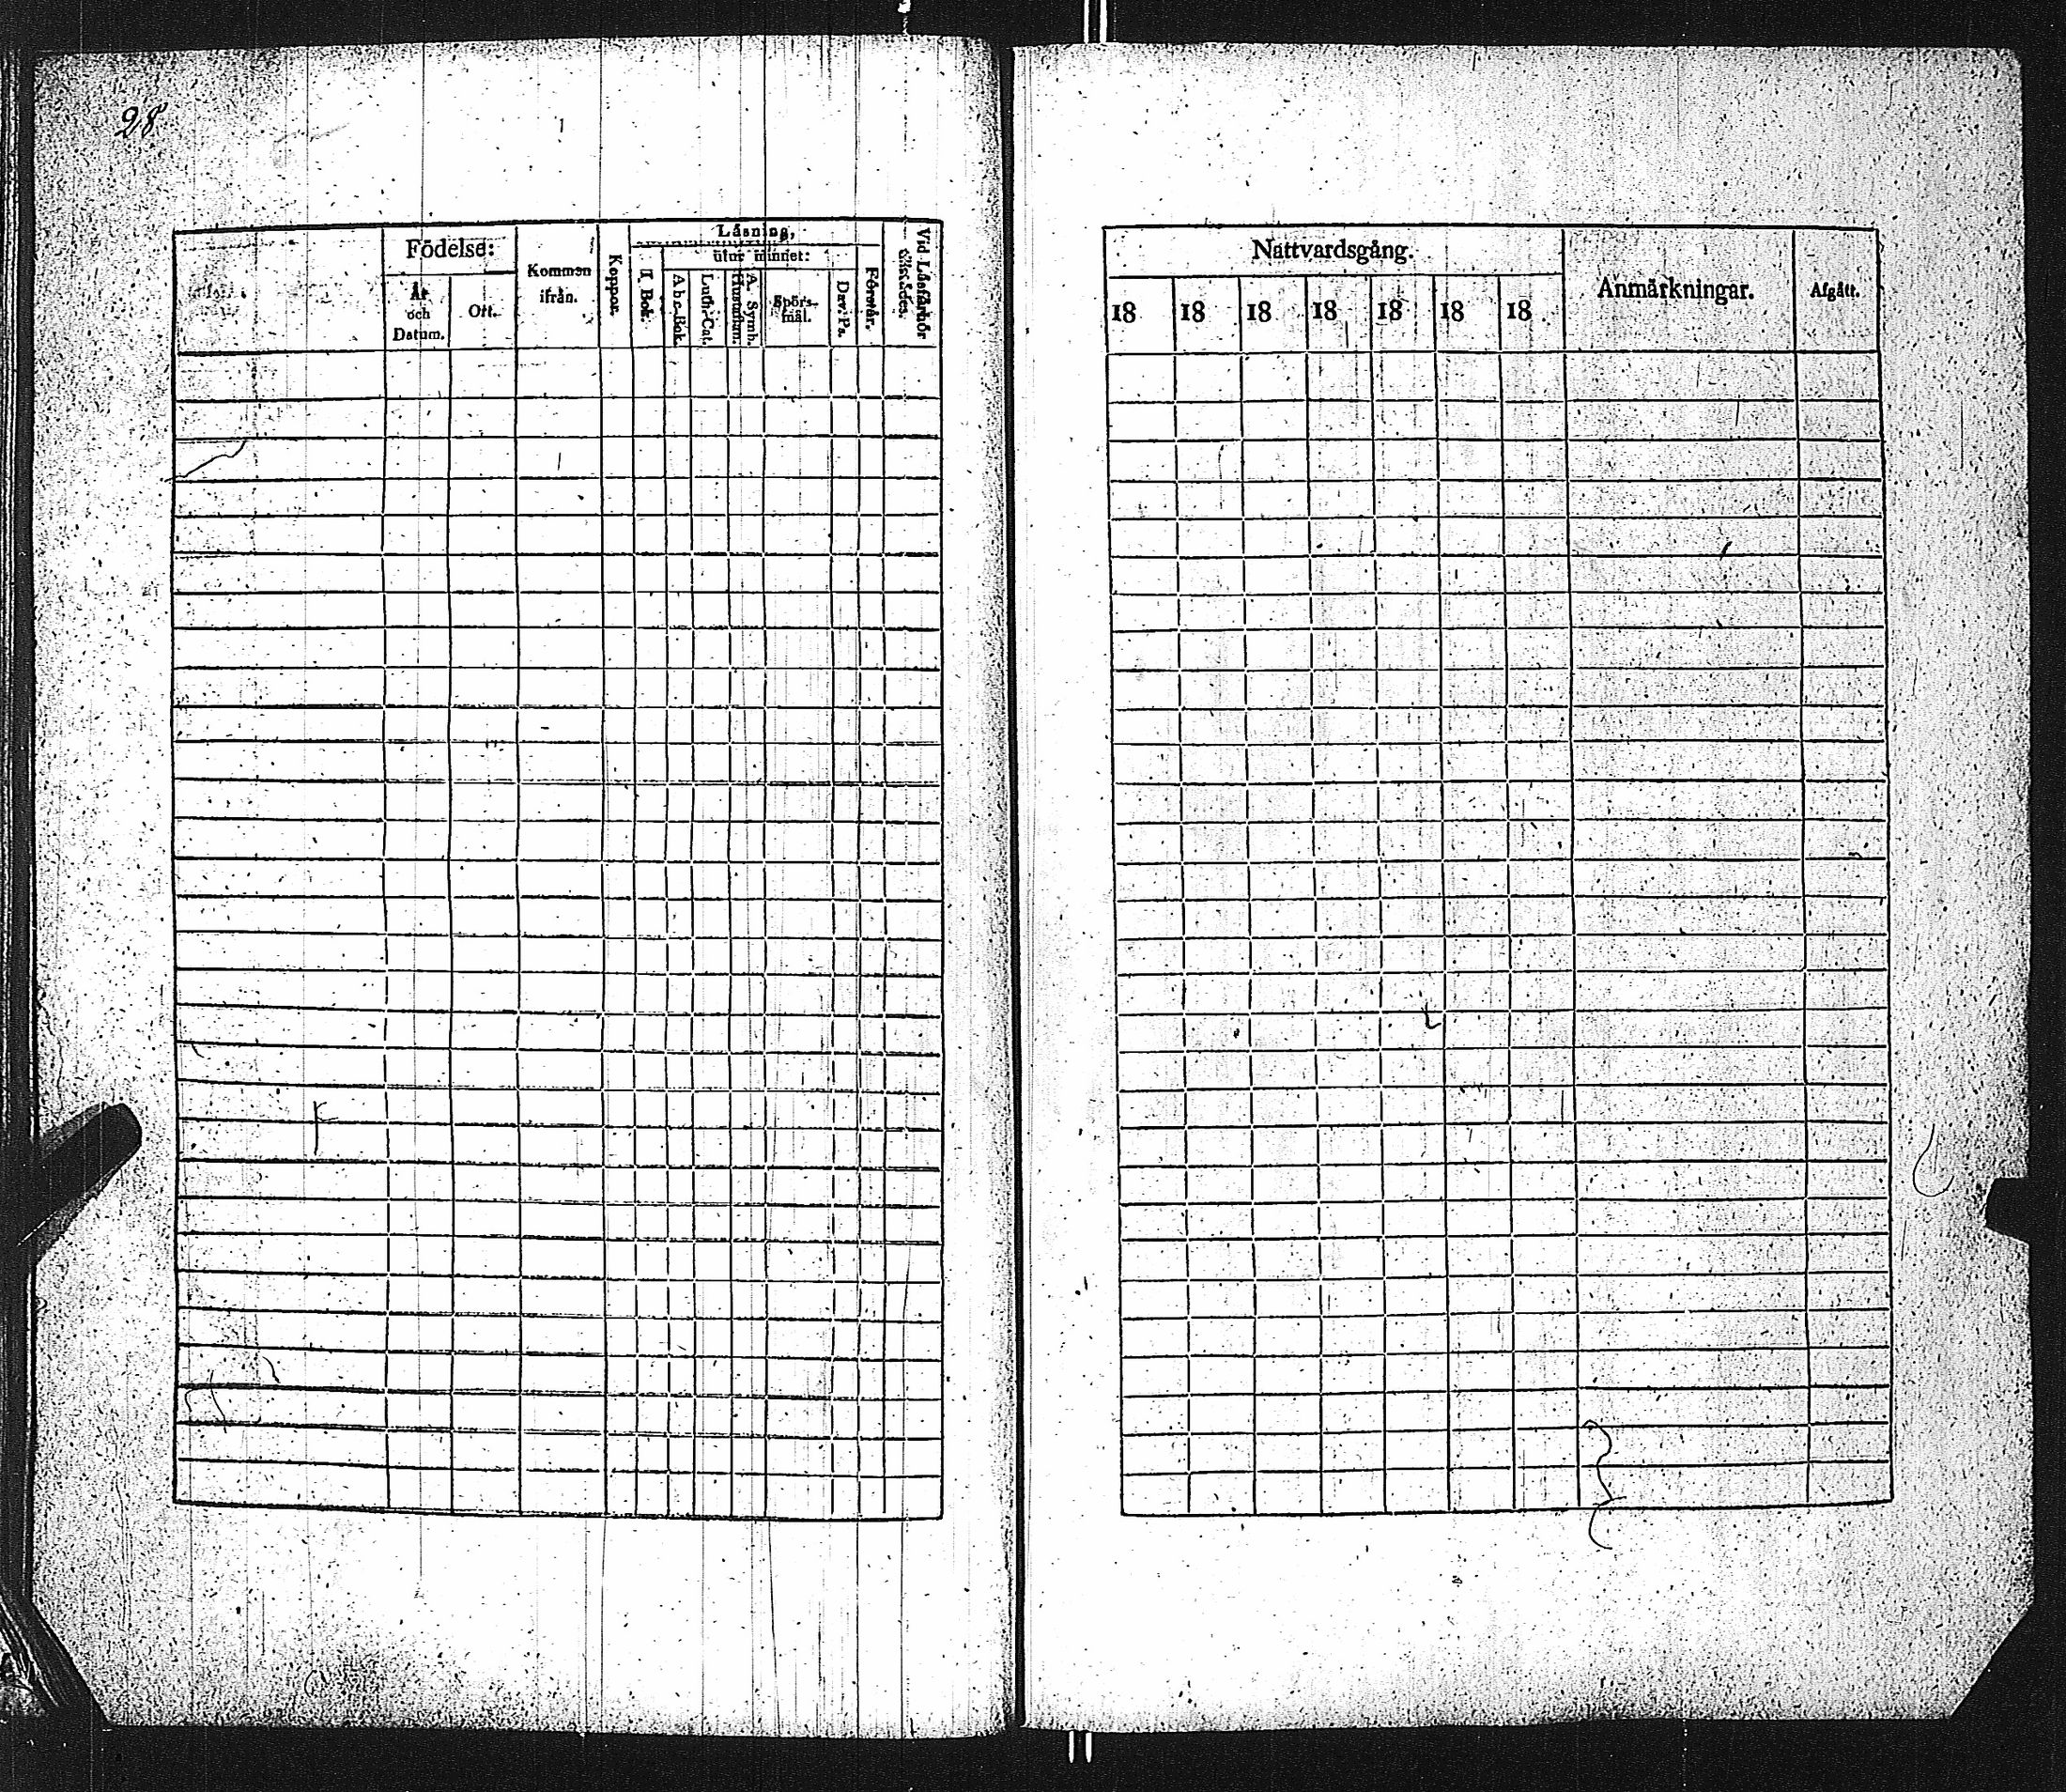 28
Födelse:
År
och
Datum.
Ort.
Kommen
ifrån.
Koppor.
Låsning,
I Bok.
utur minnet:
Abc-Bok.
Luth. Cat.
A. Symb.
Hustaflan.
Spörs-
mål.
Dav. Ps.
Förstår.
Vid Läsförhör
Nattvardsgång.
18 18 18 18 18 18 18
Anmärkningar.
Afgått.